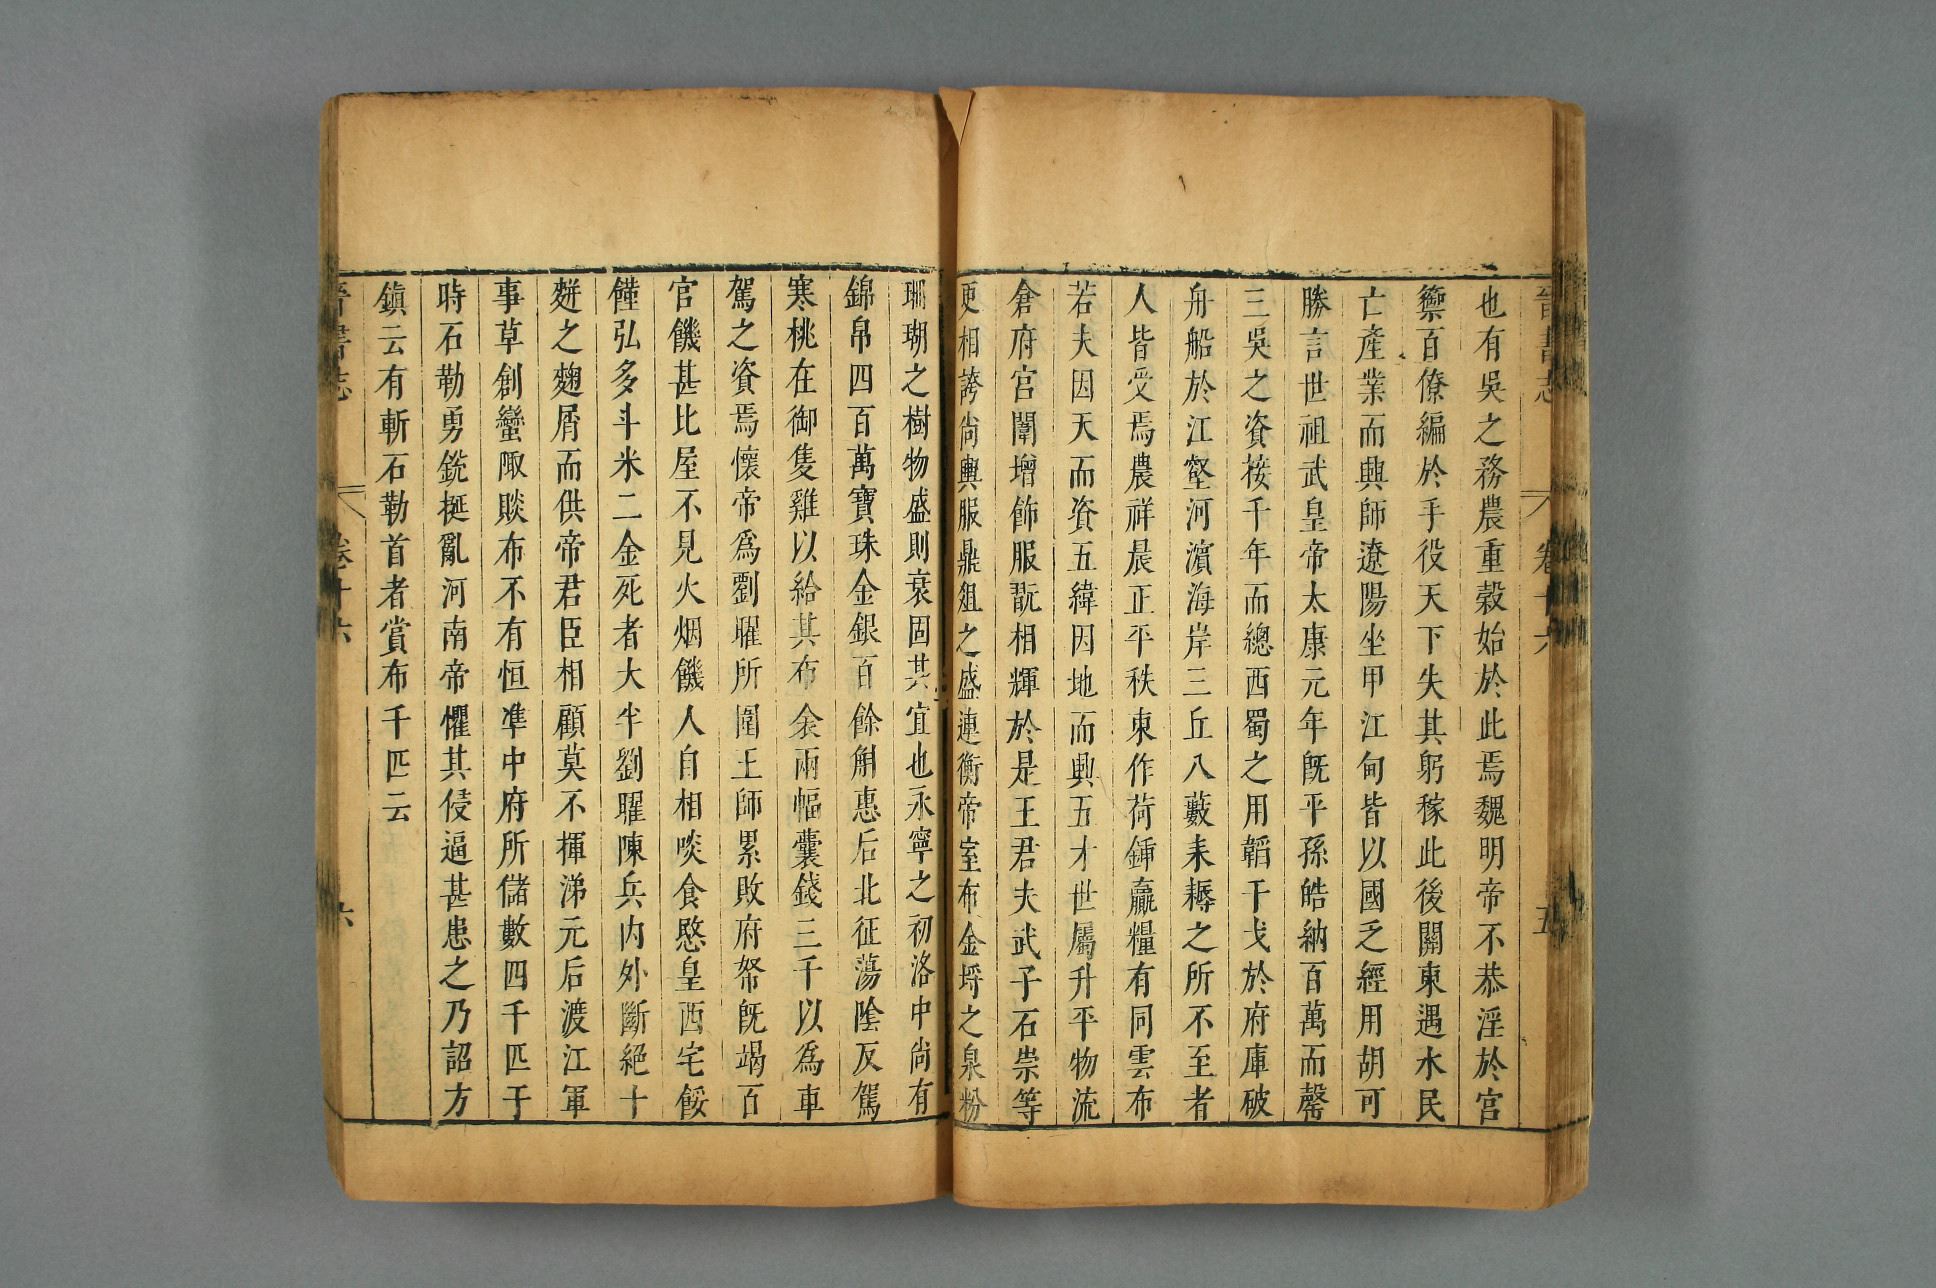 晉書志 卷十六 五
也有吳之務農重穀始於此焉魏明帝不恭淫於宮
籞百僚編於手役天下失其躬稼此後關東遇水民
亡產業而興師遼陽坐甲江甸皆以國乏經用胡可
勝言世祖武皇帝太康元年既平孫皓納百萬而罄
三吳之資接千年而總西蜀之用韜干戈於府庫破
舟船於江壑河濱海岸三丘八藪耒耨之所不至者
人皆受焉農祥晨正平秩東作荷鍤贏糧有同雲布
若夫因天而資五緯因地而興五才世屬升平物流
倉府宮闈增飾服翫相輝於是王君夫武子石崇等
更相誇尚輿服鼎俎之盛連衡帝室布金埒之泉粉
珊瑚之樹物盛則衰固其宜也永寧之初洛中尚有
錦帛四百萬寶珠金銀百餘斛惠后北征蕩陰反駕
寒桃在御隻雞以給其布衾兩幅囊錢三千以爲車
駕之資焉懷帝爲劉曜所圍王師累敗府帑既竭百
官饑甚比屋不見火烟饑人自相啖食愍皇西宅餒
饉弘多斗米二金死者大半劉曜陳兵內外斷絕十
𪌘之麴屑而供帝君臣相顧莫不揮涕元后渡江軍
事草創蠻陬賧布不有恒準中府所儲數四千匹于
時石勒勇銳挻亂河南帝懼其侵逼甚患之乃詔方
鎮云有斬石勒首者賞布千匹云
晉書志 卷十六 六